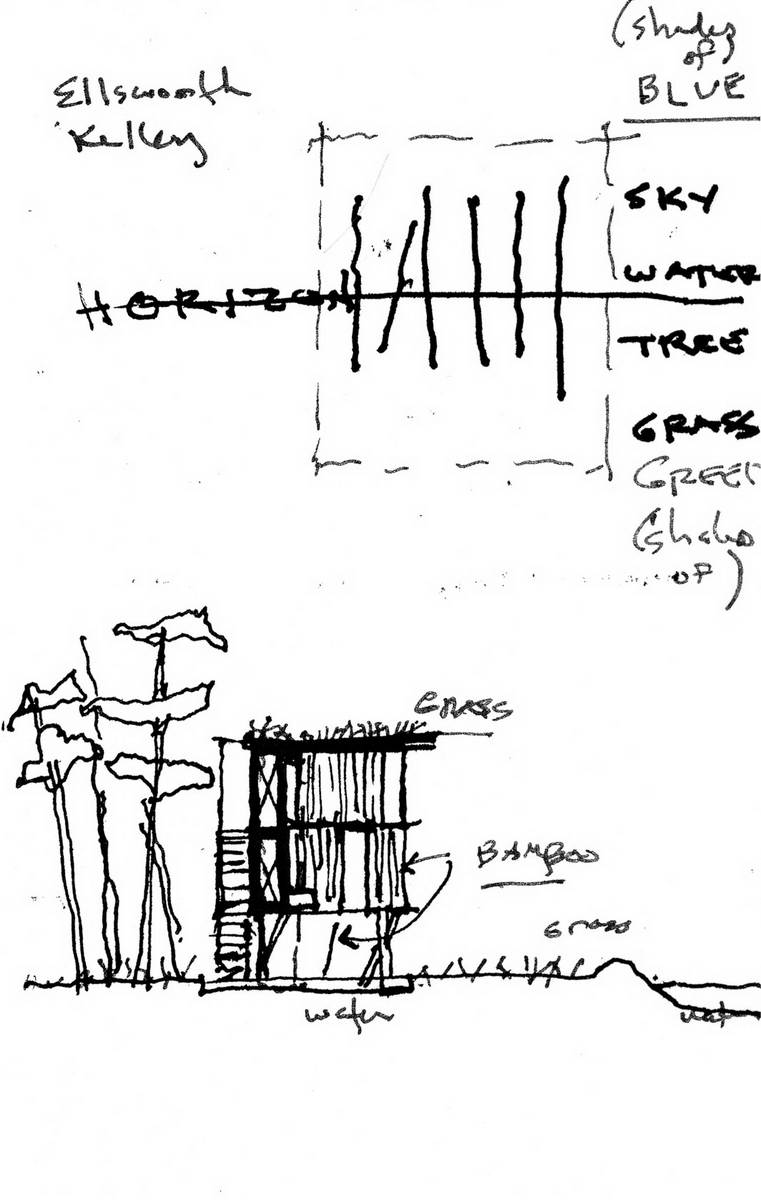 (shades
of)
BLUE
Ellsworth
Kelley
SKY
WATER
HORIZON
TREE
GRASS
GREE
(shades
of)
GRASS
BAMBOO
GRASS
water
wat